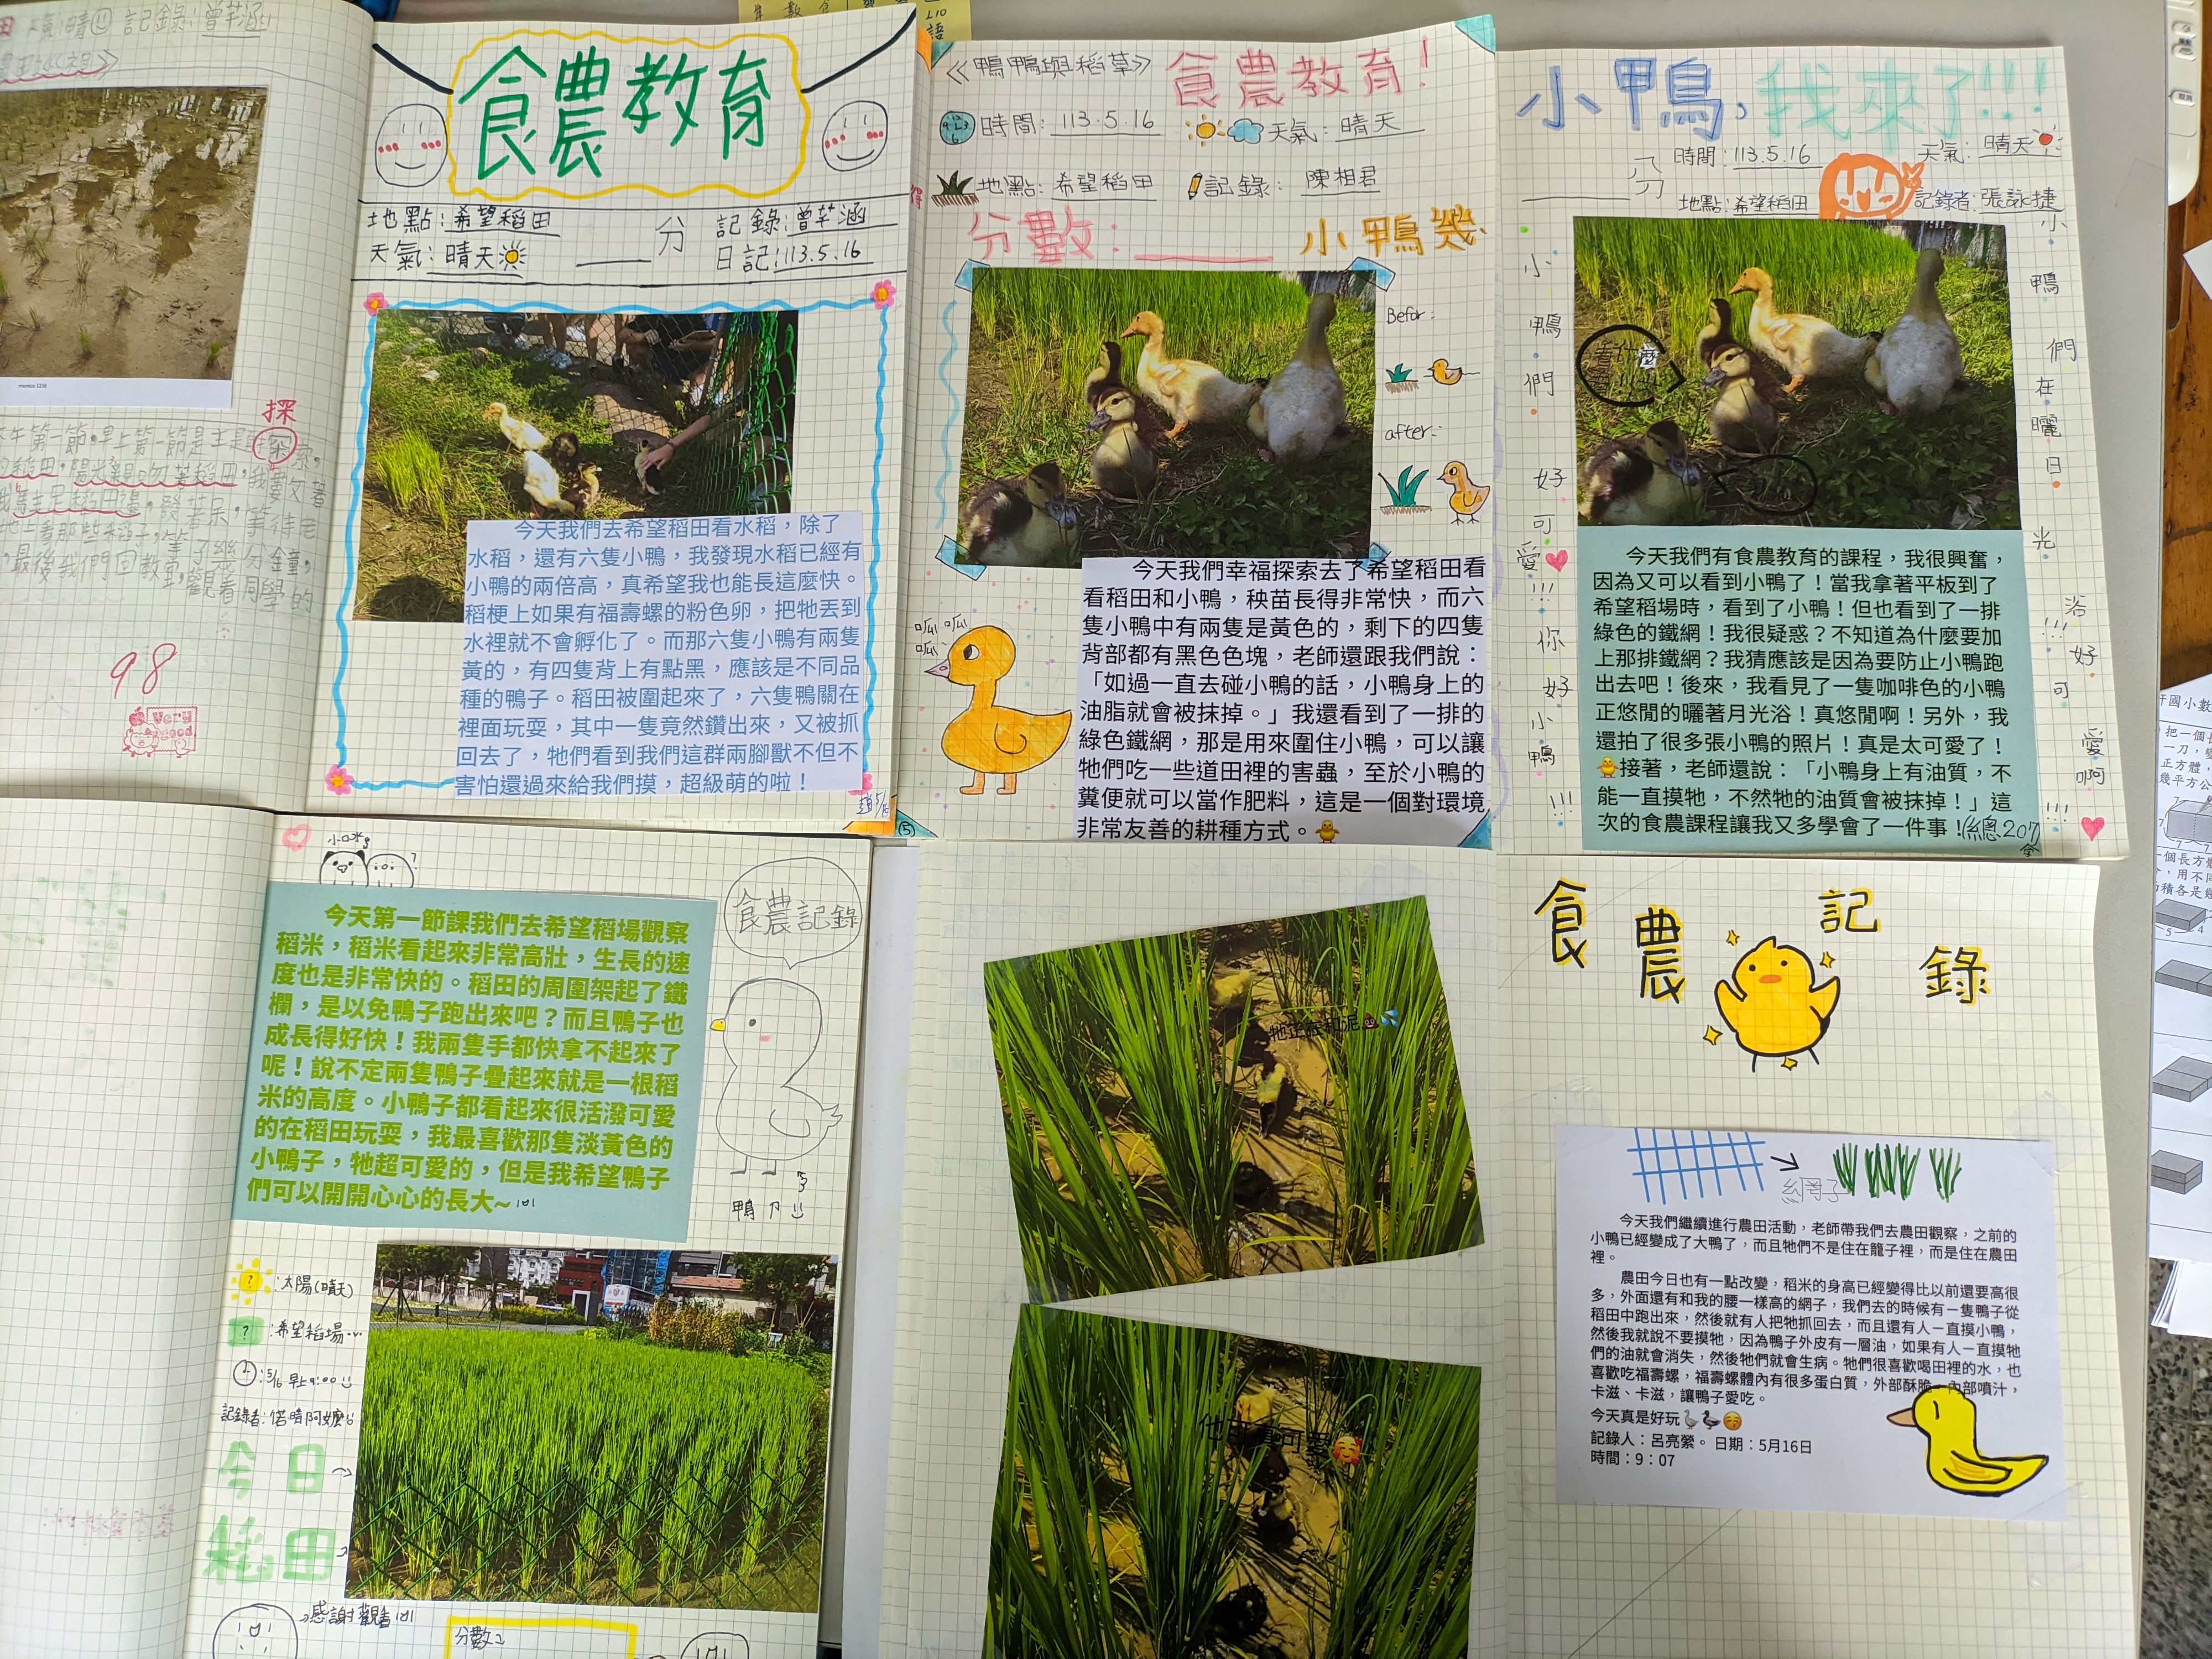 天氣:晴 記錄:曾芊涵
memico 1210
探
98
Very
good
食農教育
地點:希望稻田
天氣:晴天
分
記錄:曾芊涵
日記:113.5.16
今天我們去希望稻田看水稻，除了
水稻，還有六隻小鴨，我發現水稻已經有
小鴨的兩倍高，真希望我也能長這麼快。
稻梗上如果有福壽螺的粉色卵，把牠丟到
水裡就不會孵化了。而那六隻小鴨有兩隻
黃的，有四隻背上有點黑，應該是不同品
種的鴨子。稻田被圍起來了，六隻鴨關在
裡面玩耍，其中一隻竟然鑽出來，又被抓
回去了，牠們看到我們這群兩腳獸不但不
害怕還過來給我們摸，超級萌的啦！
《鴨鴨與稻草》
食農教育!
時間:113.5.16
天氣:晴天
地點:希望稻田
記錄:陳相君
分數:
小鴨幾
Befor:
after:
呱 呱
呱
今天我們幸福探索去了希望稻田看
看稻田和小鴨，秧苗長得非常快，而六
隻小鴨中有兩隻是黃色的，剩下的四隻
背部都有黑色色塊，老師還跟我們說：
「如過一直去碰小鴨的話，小鴨身上的
油脂就會被抹掉。」我還看到了一排的
綠色鐵網，那是用來圍住小鴨，可以讓
牠們吃一些道田裡的害蟲，至於小鴨的
糞便就可以當作肥料，這是一個對環境
非常友善的耕種方式。
⑤
小鴨,我來了!!!
分
時間:113.5.16
天氣:晴天
地點:希望稻田
記錄者:張詠捷
小鴨們好可愛!!!你好小鴨!!!
小鴨們在曬日光浴!!!好可愛啊!!!
今天我們有食農教育的課程，我很興奮，
因為又可以看到小鴨了！當我拿著平板到了
希望稻場時，看到了小鴨！但也看到了一排
綠色的鐵網！我很疑惑？不知道為什麼要加
上那排鐵網？我猜應該是因為要防止小鴨跑
出去吧！後來，我看見了一隻咖啡色的小鴨
正悠閒的曬著月光浴！真悠閒啊！另外，我
還拍了很多張小鴨的照片！真是太可愛了！
接著，老師還說：「小鴨身上有油質，不
能一直摸牠，不然牠的油質會被抹掉！」這
次的食農課程讓我又多學會了一件事！(總207
小口水
食農記錄
今天第一節課我們去希望稻場觀察
稻米，稻米看起來非常高壯，生長的速
度也是非常快的。稻田的周圍架起了鐵
欄，是以免鴨子跑出來吧？而且鴨子也
成長得好快！我兩隻手都快拿不起來了
呢！說不定兩隻鴨子疊起來就是一根稻
米的高度。小鴨子都看起來很活潑可愛
的在稻田玩耍，我最喜歡那隻淡黃色的
小鴨子，牠超可愛的，但是我希望鴨子
們可以開開心心的長大~
鴨
:太陽(晴天)
:希望稻場
:5/16 早上9:00
記錄者:偌晴阿嬤
今日
稻田
感謝觀看
分數:
牠正在和泥
他也真可愛
食農記錄
網子
今天我們繼續進行農田活動，老師帶我們去農田觀察，之前的
小鴨已經變成了大鴨了，而且牠們不是住在籠子裡，而是住在農田
裡。
農田今日也有一點改變，稻米的身高已經變得比以前還要高很
多，外面還有和我的腰一樣高的網子，我們去的時候有一隻鴨子從
稻田中跑出來，然後就有人把牠抓回去，而且還有人一直摸小鴨，
然後我就說不要摸牠，因為鴨子外皮有一層油，如果有人一直摸牠
們的油就會消失，然後牠們就會生病。牠們很喜歡喝田裡的水，也
喜歡吃福壽螺，福壽螺體內有很多蛋白質，外部酥脆，內部噴汁，
卡滋、卡滋，讓鴨子愛吃。
今天真是好玩
記錄人：呂亮縈。日期：5月16日
時間：9：07